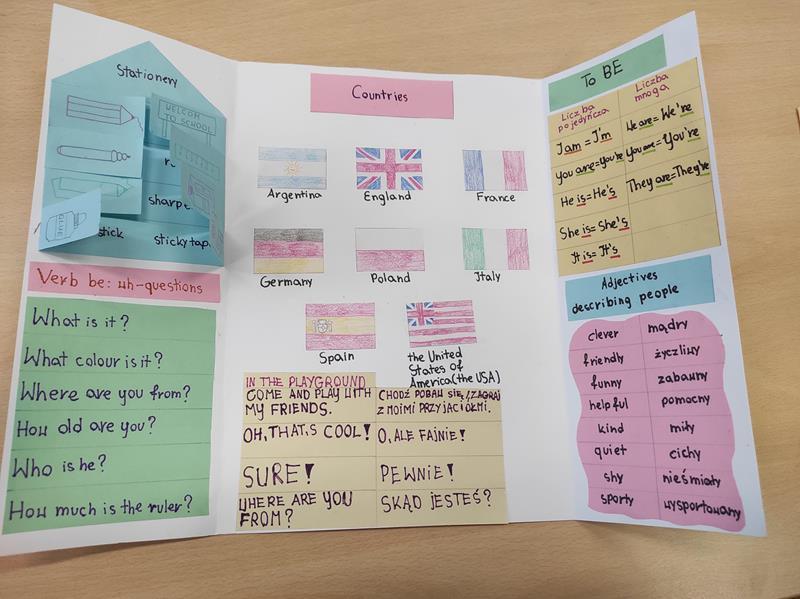 Stationery
WELCOM
TO SCHOOL
GLUE
stick
sticky tap
Verb be: wh-questions
What is it?
What colour is it?
Where are you from?
How old are you?
Who is he?
How much is the ruler?
Countries
Argentina
England
France
Germany
Poland
Italy
Spain
the United
States of
America (the USA)
IN THE PLAYGROUND
COME AND PLAY WITH
MY FRIENDS.
CHODŹ POBAW SIĘ / ZAGRAJ
Z MOIMI PRZYJACIÓŁMI.
OH, THAT,S COOL!
O, ALE FAJNIE!
SURE!
PEWNIE!
WHERE ARE YOU
FROM?
SKĄD JESTEŚ?
TO BE
Liczba
pojedyńcza
Liczba
mnoga
I am = I'm
We are = We're
You are = You're
You are = You're
He is = He's
They are = They're
She is = She's
It is = It's
Adjectives
describing people
clever mądry
friendly życzliwy
funny zabawny
helpful pomocny
kind miły
quiet cichy
shy nieśmiały
sporty wysportowany